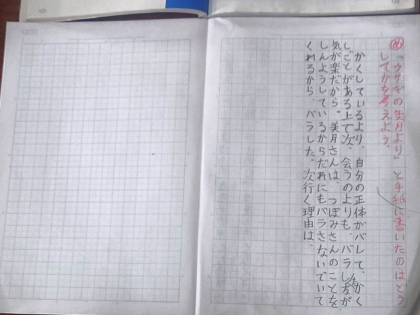 め「ウサギの美月より」と手紙に書いたのはどう
してか考えよう。
かくしているより、自分の正体がバレて、かく
しごとがある上で次、会うのよりも、バラした方が
気が楽だから。美月さんは、つぼみさんのことを
しんようしているからだれにもバラさないでいて
くれるから、バラした。次行く理由は